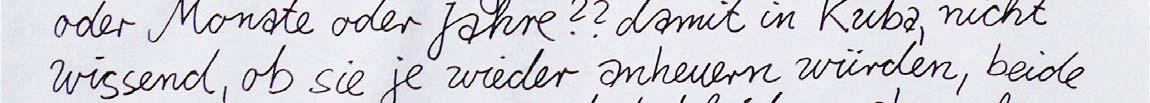 oder Monate oder Jahre?? damit in Kuba, nicht
wissend, ob sie je wieder anheuern würden, beide